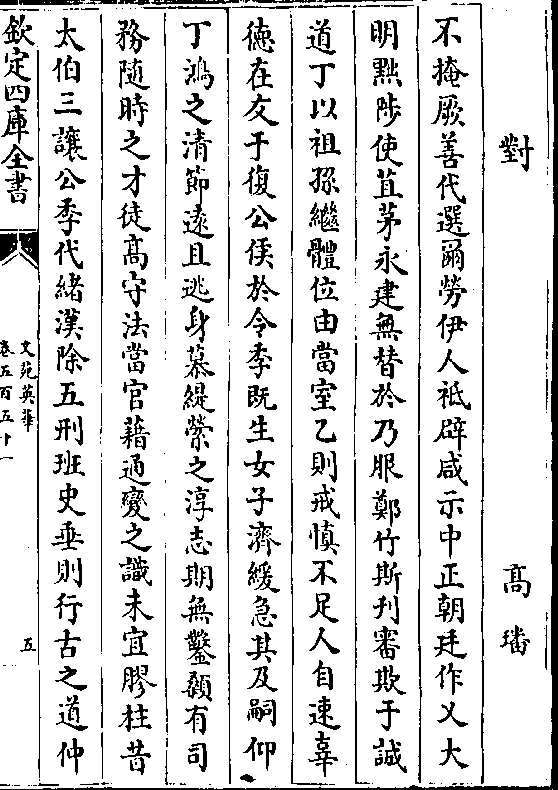 對　高璠
不掩厥善代選爾勞伊人祗辟咸示中正朝廷作乂大
明黜陟使苴茅永建無替於乃服鄭竹斯刋審欺于誠
道丁以祖孫繼體位由當室乙則戒慎不足人自速辜
徳在友于復公侯於令季既生女子濟緩急其及嗣仰
丁鴻之清節遠且逃身慕緹縈之淳志期無鑿顙有司
務隨時之才徒髙守法當官藉通變之識未宜膠柱昔
太伯三讓公季代緒漢除五刑班史垂則行古之道仲
欽定四庫全書
文苑英華
卷五百五十一
五